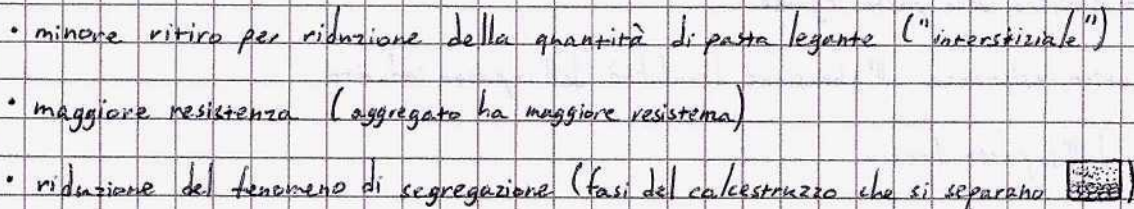 • minore ritiro per riduzione della quantità di pasta legante ("interstiziale")
• maggiore resistenza (aggregato ha maggiore resistenza)
• riduzione del fenomeno di segregazione (fasi del calcestruzzo che si separano)